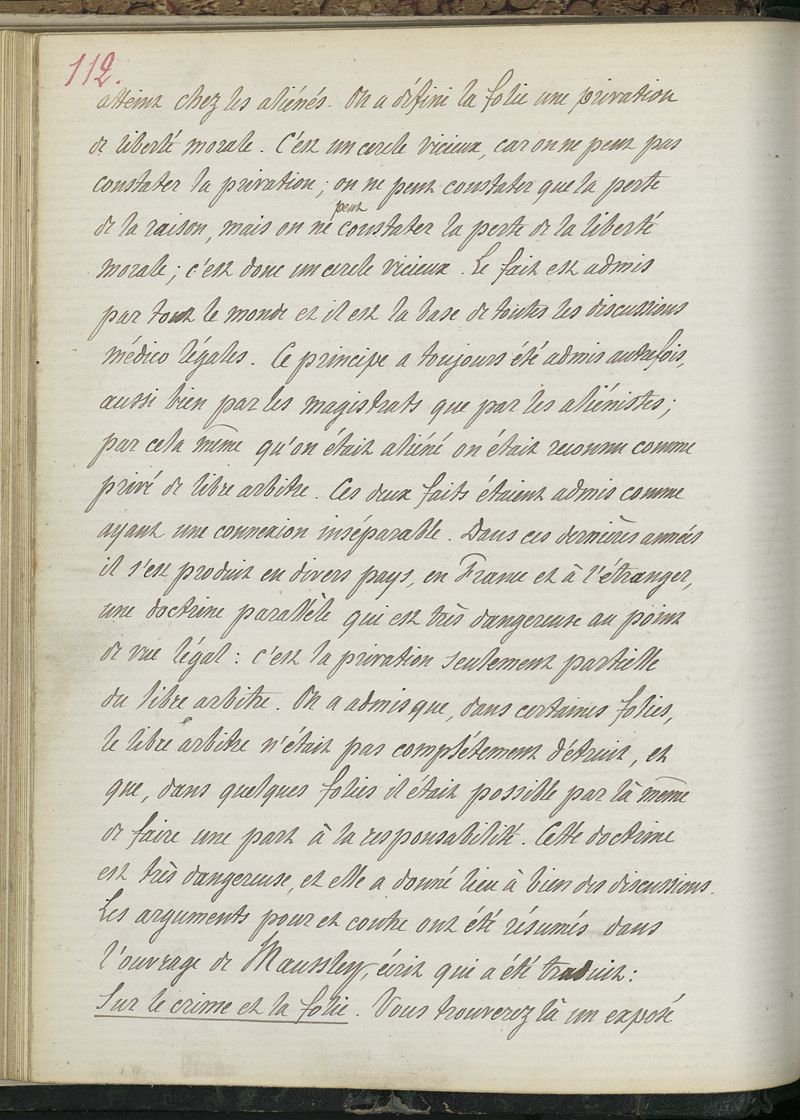 112.
atteint chez les aliénés. On a défini la folie une privation
de liberté morale. C'est un cercle vicieux, car on ne peut pas
constater la privation ; on ne peut constater que la perte
de la raison, mais on ne peut constater la perte de la liberté
morale ; c'est donc un cercle vicieux. Le fait est admis
par tout le monde et il est la base de toutes les discussions
médico légales. Ce principe a toujours été admis autrefois,
aussi bien par les magistrats que par les aliénistes ;
par cela même qu'on était aliéné on était reconnu comme
privé de libre arbitre. Ces deux faits étaient admis comme
ayant une connexion inséparable. Dans ces dernières années
il s'est produit en divers pays, en France et à l'étranger,
une doctrine parallèle qui est très dangereuse au point
de vue légal : c'est la privation seulement partielle
du libre arbitre. On a admis que, dans certaines folies,
le libre arbitre n'était pas complètement détruit, et
que, dans quelques folies il était possible par là même
de faire une part à la responsabilité. Cette doctrine
est très dangereuse, et elle a donné lieu à bien des discussions.
Les arguments pour et contre ont été résumés dans
l'ouvrage de Maussley, écrit qui a été traduit :
Sur le crime et la folie. Vous trouverez là un exposé